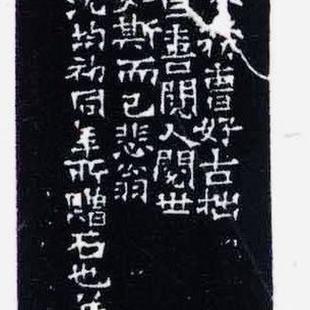 曹好古拙
書閱人閱世
斯而已悲翁
沈均初同年所贈石也